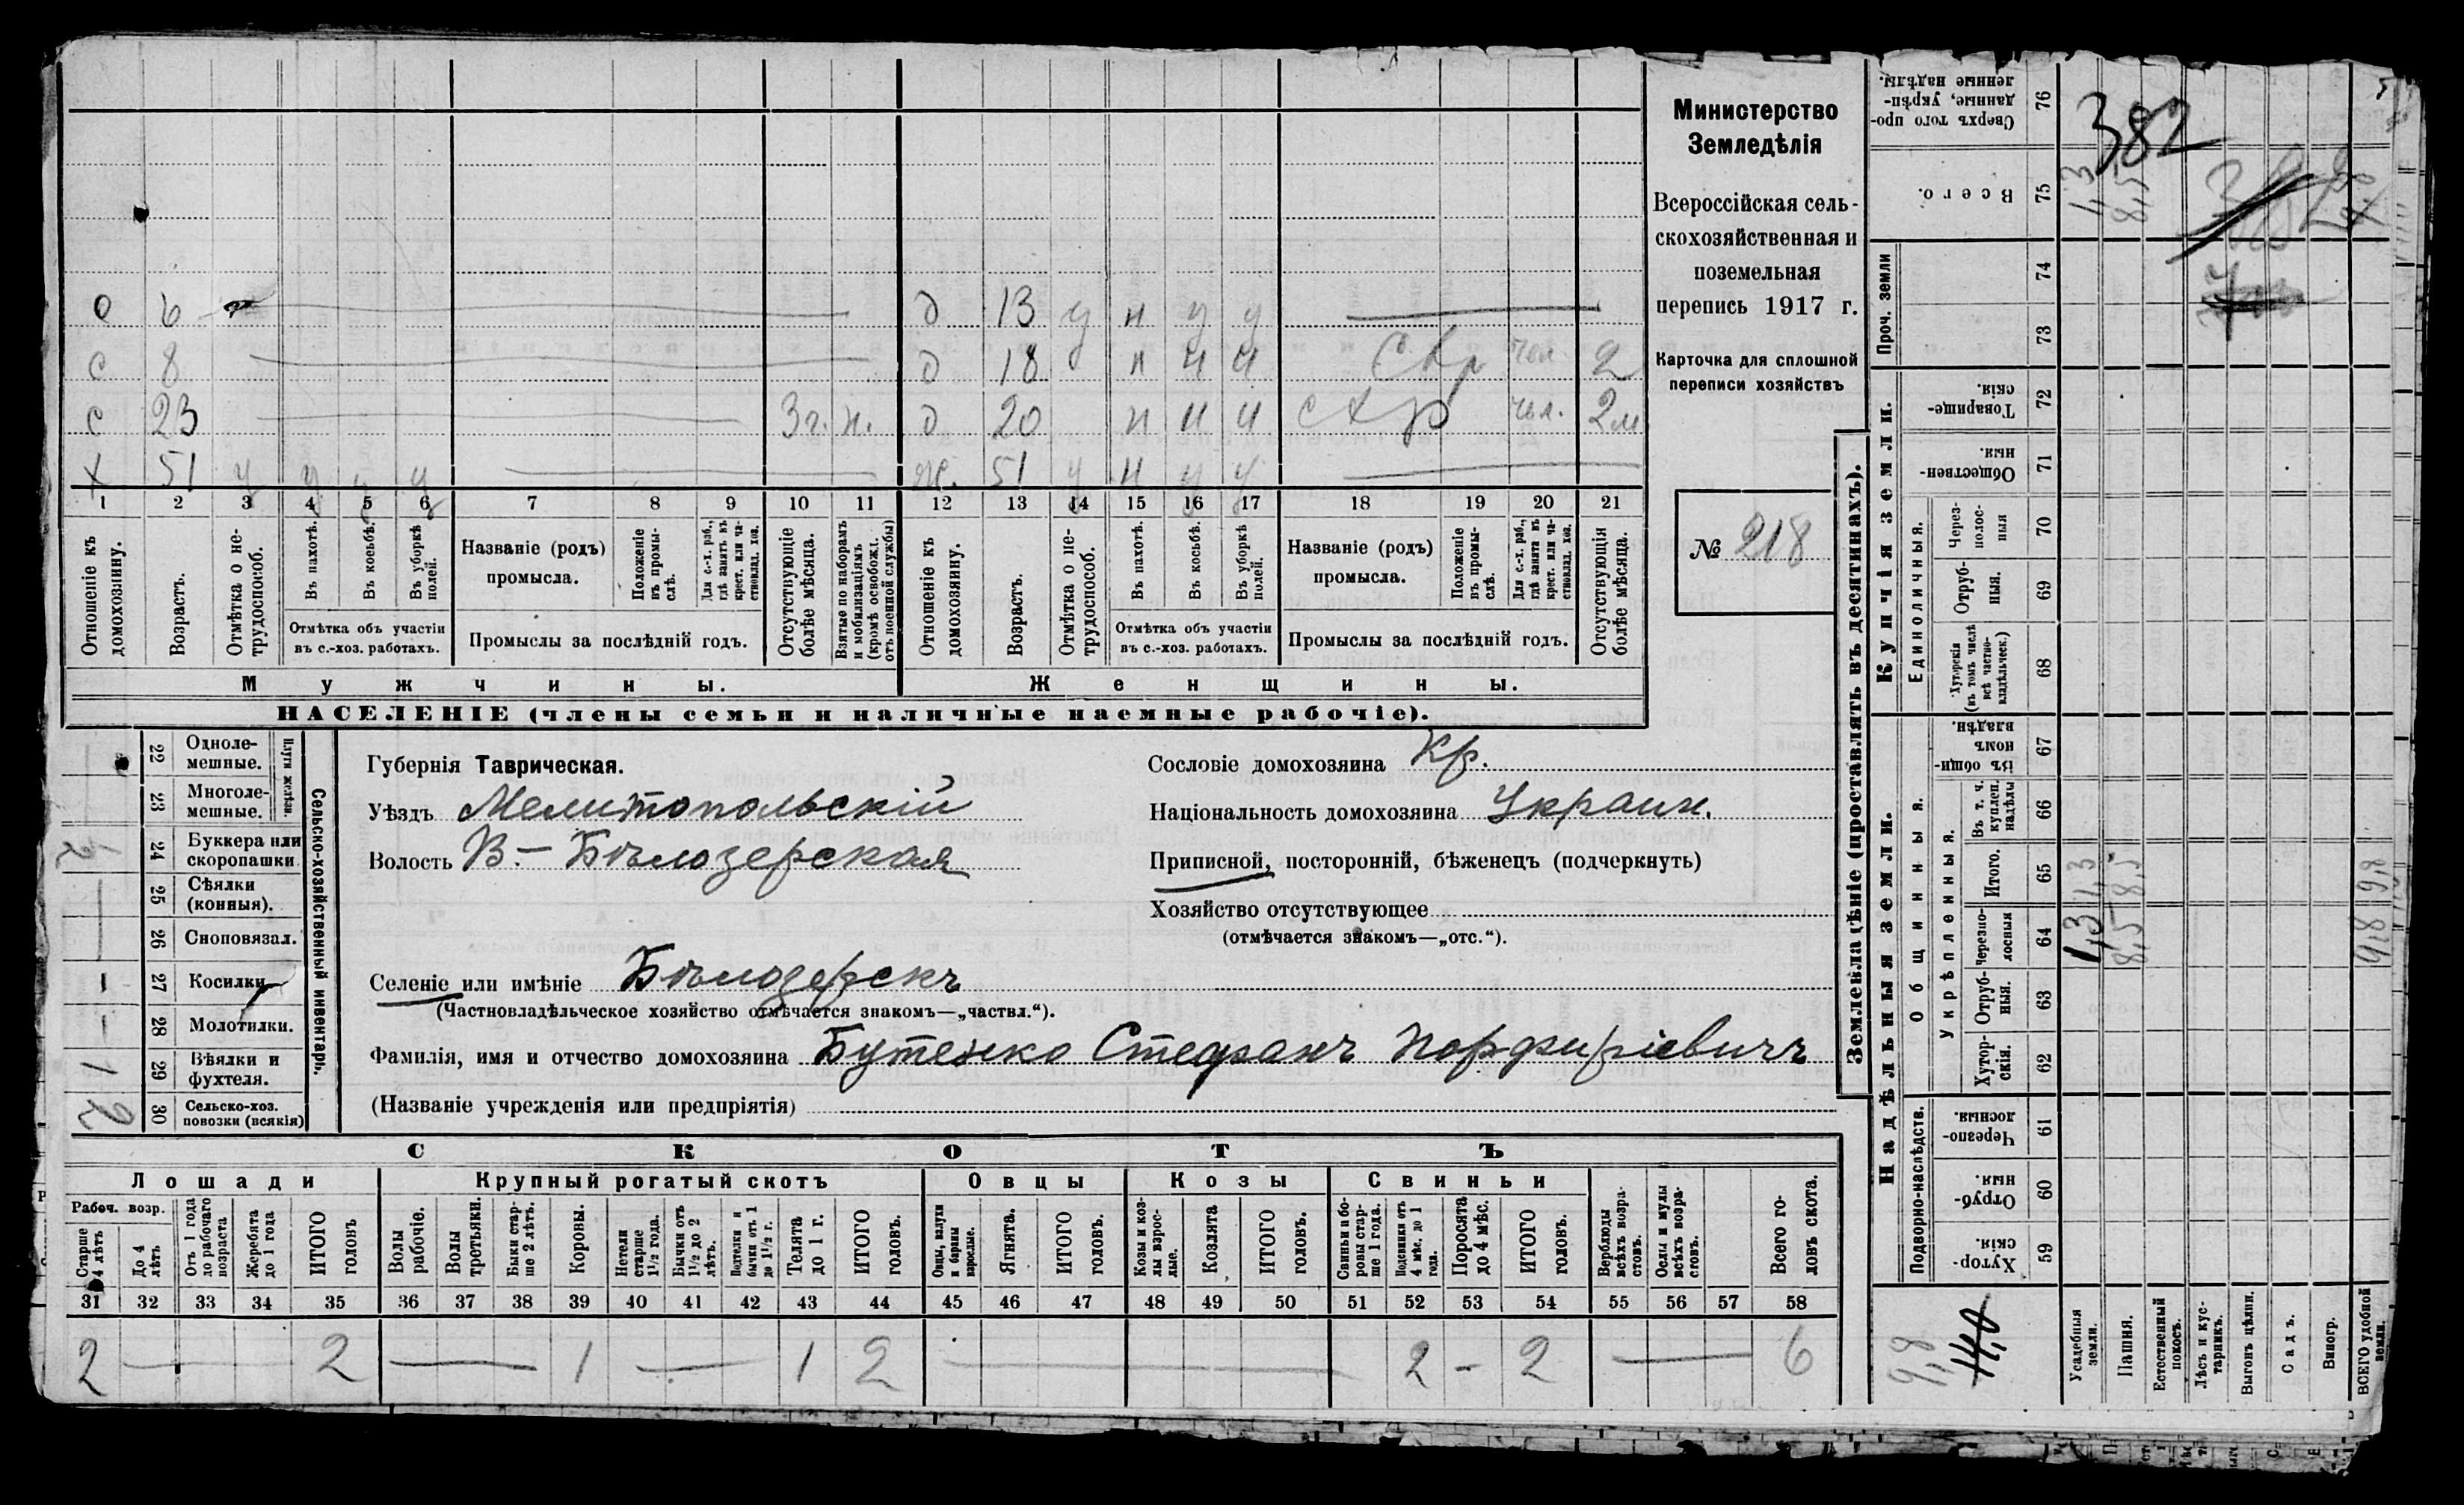 о 6 д 13 у н у у
с 8 д 18 н и и Скр чел. 2
с 23 3 г. н. д 20 н и и чел. 2 м
х 51 у у у у ж. 51 у н у у
1 2 3 4 5 6 7 8 9 10 11 12 13 14 15 16 17 18 19 20 21
Отношеніе къ домохозяину.
Возрастъ.
Отмѣтка о нетрудоспособ.
Въ пахотѣ.
Въ косьбѣ.
Въ уборкѣ полей.
Отмѣтка объ участіи въ с.-хоз. работахъ.
Названіе (родъ) промысла.
Положеніе въ промыслѣ.
Для с.-х. раб., гдѣ занятъ въ крест. или частновлад. хоз.
Промыслы за послѣдній годъ.
Отсутствующіе болѣе мѣсяца.
Взятые по наборамъ и мобилизаціямъ (кромѣ освобожд. отъ военной службы)
Отношеніе къ домохозяину.
Возрастъ.
Отмѣтка о нетрудоспособ.
Въ пахотѣ.
Въ косьбѣ.
Въ уборкѣ полей.
Отмѣтка объ участіи въ с.-хоз. работахъ.
Названіе (родъ) промысла.
Положеніе въ промыслѣ.
Для с.-х. раб., гдѣ занята въ крест. или частновлад. хоз.
Промыслы за послѣдній годъ.
Отсутствующія болѣе мѣсяца.
Мужчины.
Женщины.
НАСЕЛЕНІЕ (члены семьи и наличные наемные рабочіе).
Министерство
Земледѣлія
Всероссійская сель-
скохозяйственная и
поземельная
перепись 1917 г.
Карточка для сплошной
переписи хозяйствъ
№ 218
22 Одноле-
мешные.
23 Многоле-
мешные.
Плуги желѣзн.
24 Буккера или
скоропашки
2
25 Сѣялки
(конныя).
26 Сноповязал.
27 Косилки
28 Молотилки.
29 Вѣялки и
фухтеля.
1
30 Сельско-хоз.
повозки (всякія)
2
Сельско-хозяйственный инвентарь.
Губернія Таврическая.
Уѣздъ Мелитопольскій
Волость В.-Бѣлозерская
Селеніе или имѣніе Бѣлозерскъ
(Частновладѣльческое хозяйство отмѣчается знакомъ—„частвл.“).
Фамилія, имя и отчество домохозяина Бутенко Стефанъ Порфиріевичъ
(Названіе учрежденія или предпріятія)
Сословіе домохозяина Кр.
Національность домохозяина Украин.
Приписной, посторонній, бѣженецъ (подчеркнуть)
Хозяйство отсутствующее
(отмѣчается знакомъ—„отс.“).
СКОТЪ
Лошади
Крупный рогатый скотъ
Овцы
Козы
Свиньи
Рабоч. возр.
Старше 4 лѣтъ
До 4 лѣтъ
Отъ 1 года до рабочаго возраста
Жеребята до 1 года
ИТОГО головъ
Волы рабочіе.
Волы третьяки.
Быки старше 2 лѣтъ.
Коровы.
Нетели старше 1½ года.
Бычки отъ 1½ до 2 лѣтъ.
Подтелки и бычки отъ 1 до 1½ г.
Телята до 1 г.
ИТОГО головъ.
Овцы, валухи и бараны взрослые.
Ягнята.
ИТОГО головъ.
Козы и козлы взрослые.
Козлята
ИТОГО головъ.
Свиньи и боровы старше 1 года.
Подсвинки отъ 4 мѣс. до 1 года.
Поросята до 4 мѣс.
ИТОГО головъ.
Верблюды всѣхъ возрастовъ.
Ослы и мулы всѣхъ возрастовъ.
Всего головъ скота.
31 32 33 34 35 36 37 38 39 40 41 42 43 44 45 46 47 48 49 50 51 52 53 54 55 56 57 58
2 — 2 — 1 — 1 2 — 2 - 2 — 6
Землевладѣніе (проставлять въ десятинахъ).
Купчія земли.
Проч. земли
Единоличныя.
Надѣльныя земли.
Общинныя.
Укрѣпленныя.
Подворно-наслѣдств.
Сверхъ того проданные, укрѣпленные надѣлы. 76
382
Всего. 75
1,3 8,5
74
73
Товарищескія. 72
Общественныя. 71
Черезполосныя 70
Отрубныя. 69
Хуторскія (въ томъ числѣ всѣ частновладѣльческ.) 68
Въ общинномъ владѣн. 67
Въ т. ч. куплен. надѣлы 66
Итого. 65
1,3 8,5 9,8
Черезполосныя 64
1,3 8,5 9,8
Отрубныя. 63
Хуторскія. 62
Черезполосныя. 61
Отрубныя. 60
Хуторскія 59
9,8
14,0
Усадебныя земли.
Пашня.
Естественный покосъ.
Лѣсъ и кустарникъ.
Выгонъ цѣлин.
Садъ.
Виногр.
ВСЕГО удобной земли.